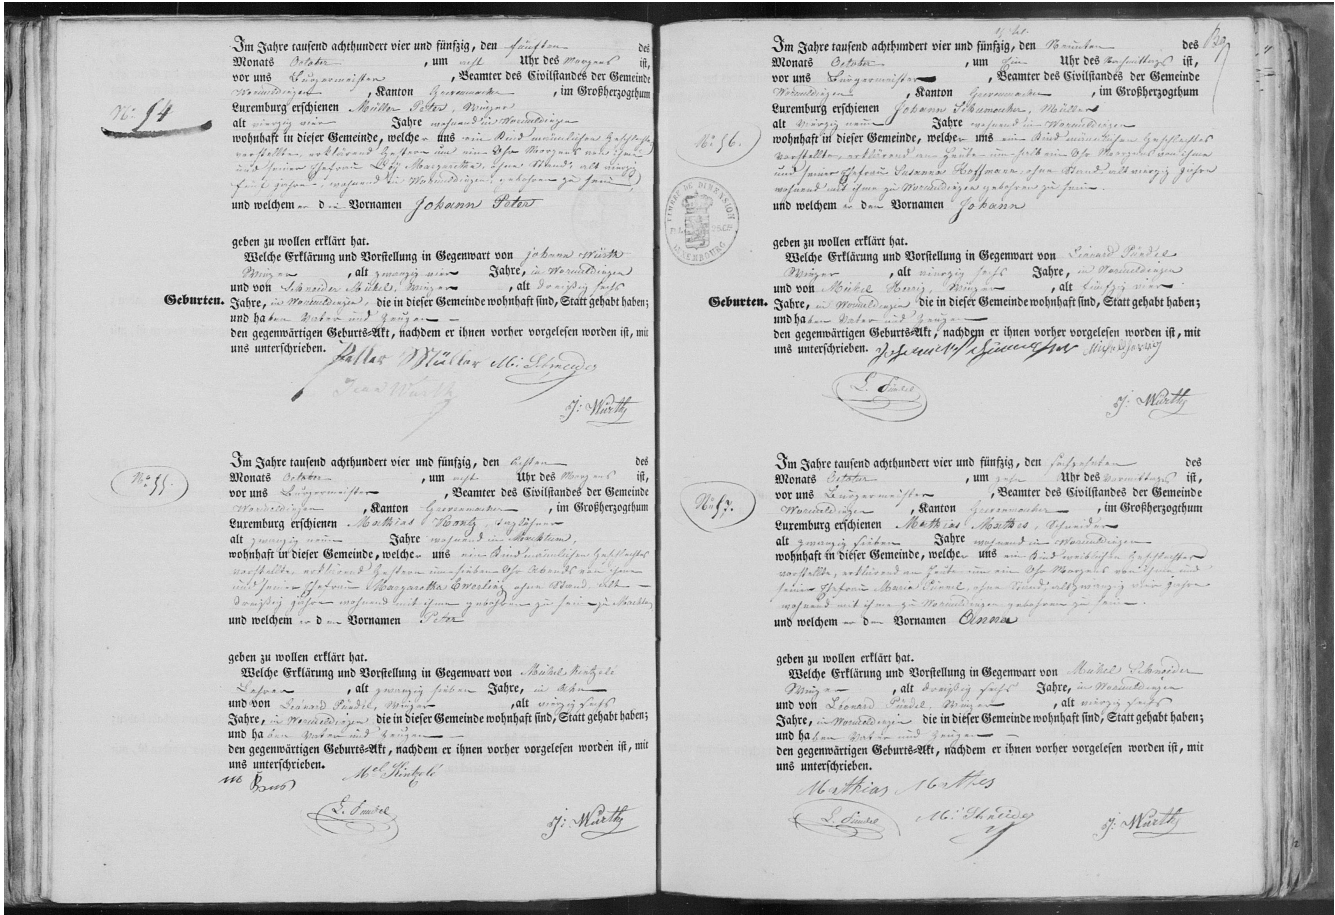 No 54
Im Jahre tausend achthundert vier und fünfzig, den fünften des
Monats October, um acht Uhr des Morgens ist,
vor uns Bürgermeister, Beamter des Civilstandes der Gemeinde
Wormeldingen, Kanton Grevenmacher, im Großherzogthum
Luxemburg erschienen Müller Peter, Winzer
alt vierzig vier Jahre wohnend in Wormeldingen
wohnhaft in dieser Gemeinde, welcher uns ein Kind männlichen Geschlechts
vorstellte, erklärend gestern um ein Uhr Morgens von ihm
und seiner Ehefrau Margaretha, ohne Stand, alt vierzig
fünf Jahre, wohnend in Wormeldingen, geboren zu sein,
und welchem er den Vornamen Johann Peter
geben zu wollen erklärt hat.
Welche Erklärung und Vorstellung in Gegenwart von Johann Würth
Winzer, alt zwanzig vier Jahre, in Wormeldingen
und von Schneider Michel, Winzer, alt dreißig sechs
Geburten. Jahre, in Wormeldingen, die in dieser Gemeinde wohnhaft sind, Statt gehabt haben;
und haben Vater und Zeugen
den gegenwärtigen Geburts-Akt, nachdem er ihnen vorher vorgelesen worden ist, mit
uns unterschrieben.
Müller Mi: Schneider
Jean Würth
J: Würth
No 55.
Im Jahre tausend achthundert vier und fünfzig, den achten des
Monats October, um acht Uhr des Morgens ist,
vor uns Bürgermeister, Beamter des Civilstandes der Gemeinde
Wormeldingen, Kanton Grevenmacher, im Großherzogthum
Luxemburg erschienen Mathias, Taglöhner
alt zwanzig neun Jahre wohnend in Machtum,
wohnhaft in dieser Gemeinde, welcher uns ein Kind männlichen Geschlechtes
vorstellte, erklärend gestern um sieben Uhr Abends von ihm
und seiner Ehefrau Margaretha, ohne Stand, alt
dreißig Jahre wohnend mit ihm geboren zu sein zu Machtum
und welchem er den Vornamen Peter
geben zu wollen erklärt hat.
Welche Erklärung und Vorstellung in Gegenwart von Michel Kintzelé
Lehrer, alt zwanzig sieben Jahre, in Ahn
und von Léonard Pündel, Winzer, alt vierzig sechs
Jahre, in Wormeldingen die in dieser Gemeinde wohnhaft sind, Statt gehabt haben;
und haben Vater und Zeugen
den gegenwärtigen Geburts-Akt, nachdem er ihnen vorher vorgelesen worden ist, mit
uns unterschrieben.
Mel Kintzelé
L. Pündel
J: Würth
No 56.
Im Jahre tausend achthundert vier und fünfzig, den Neunten des
Monats October, um Uhr des Nachmittags ist,
vor uns Bürgermeister, Beamter des Civilstandes der Gemeinde
Wormeldingen, Kanton Grevenmacher, im Großherzogthum
Luxemburg erschienen Johann Schumacher, Müller
alt vierzig neun Jahre wohnend in Wormeldingen
wohnhaft in dieser Gemeinde, welcher uns ein Kind männlichen Geschlechtes
vorstellte, erklärend am heute um halb ein Uhr Morgens von ihm
und seiner Ehefrau Susanna Hoffmann, ohne Stand, alt vierzig Jahre
wohnend mit ihm zu Wormeldingen geboren zu sein.
und welchem er den Vornamen Johann
geben zu wollen erklärt hat.
Welche Erklärung und Vorstellung in Gegenwart von Léonard Pündel
Winzer, alt vierzig sechs Jahre, in Wormeldingen
und von Michel, Winzer, alt fünfzig vier
Geburten. Jahre, in Wormeldingen die in dieser Gemeinde wohnhaft sind, Statt gehabt haben;
und haben Vater und Zeugen
den gegenwärtigen Geburts-Akt, nachdem er ihnen vorher vorgelesen worden ist, mit
uns unterschrieben.
L. Pündel
J: Würth
TIMBRE DE DIMENSION
LUXEMBOURG
No 57.
Im Jahre tausend achthundert vier und fünfzig, den sechzehnten des
Monats October, um zehn Uhr des Vormittags ist,
vor uns Bürgermeister, Beamter des Civilstandes der Gemeinde
Wormeldingen, Kanton Grevenmacher, im Großherzogthum
Luxemburg erschienen Mathias Mathes, Schneider
alt zwanzig sieben Jahre wohnend in Wormeldingen
wohnhaft in dieser Gemeinde, welcher uns ein Kind weiblichen Geschlechtes
vorstellte, erklärend am heute um ein Uhr Morgens von ihm und
seiner Ehefrau Maria, ohne Stand, alt zwanzig vier Jahre
wohnend mit ihm zu Wormeldingen geboren zu sein.
und welchem er den Vornamen Anna
geben zu wollen erklärt hat.
Welche Erklärung und Vorstellung in Gegenwart von Michel Schneider
Winzer, alt dreißig sechs Jahre, in Wormeldingen
und von Léonard Pündel, Winzer, alt vierzig sechs
Jahre, in Wormeldingen die in dieser Gemeinde wohnhaft sind, Statt gehabt haben;
und haben Vater und Zeugen
den gegenwärtigen Geburts-Akt, nachdem er ihnen vorher vorgelesen worden ist, mit
uns unterschrieben.
Mathias Mathes
L. Pündel Mi: Schneider
J: Würth